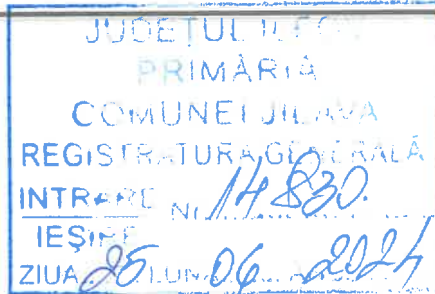 JUDEȚUL ILFOV
PRIMĂRIA
COMUNEI JILAVA
REGISTRATURA GENERALĂ
INTRARE NR. 14830.
IEȘIRE
ZIUA 26 LUNA 06 2024